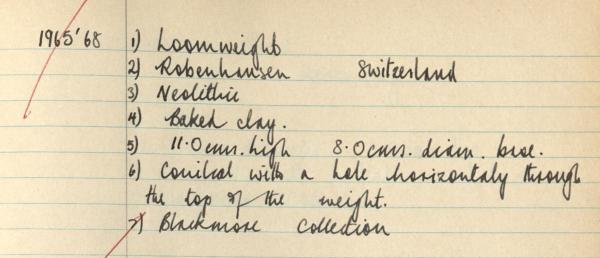 1965'68 1) Loomweight
2) Robenhausen Switzerland
3) Neolithic
4) Baked clay.
5) 11.0cms. high 8.0cms. diam. base.
6) Conical with a hole horizontaly through
the top of the weight.
7) Blackmore Collection